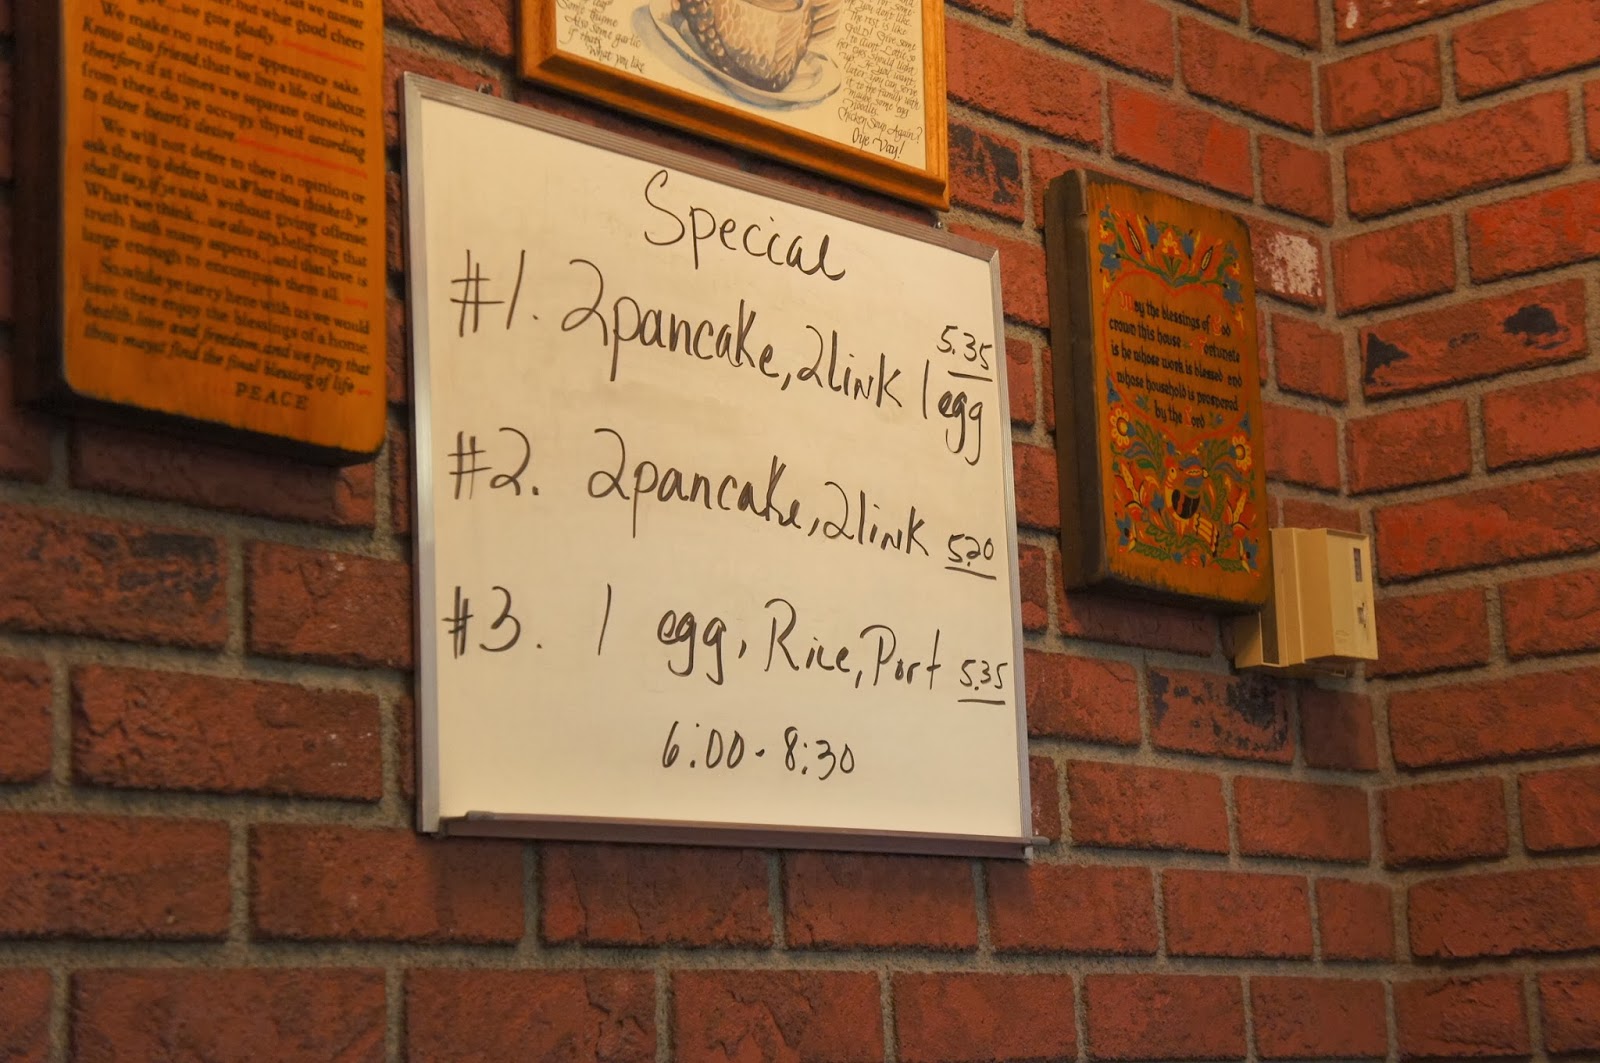 give...we give gladly.
but what good cheer
We make no strife for appearance sake.
Know also friend, that we live a life of labour
therefore, if at times we separate ourselves
from thee, do ye occupy thyself according
to thine heart's desire.
We will not defer to thee in opinion or
ask thee to defer to us. What thou thinketh ye
shall say, if ye wish, without giving offense.
What we think...we also say, believing that
truth hath many aspects...and that love is
large enough to encompass them all.
So, while ye tarry here with us we would
have thee enjoy the blessings of a home,
health, love and freedom, and we pray that
thou mayst find the final blessing of life
PEACE
Some thyme
Also some garlic
if that's
What you like
you don't like
The rest is like
Gold! Give some
to aunt
her eyes should light
later you can serve
it to the family with
maybe some egg
Noodles.
Chicken Soup Again?
Oye Vay!
Special
#1. 2 pancake, 2 link 1 egg 5.35
#2. 2 pancake, 2 link 5.20
#3. 1 egg, Rice, Port 5.35
6:00 - 8:30
May the blessings of God
crown this house Fortunate
is he whose work is blessed and
whose household is prospered
by the Lord